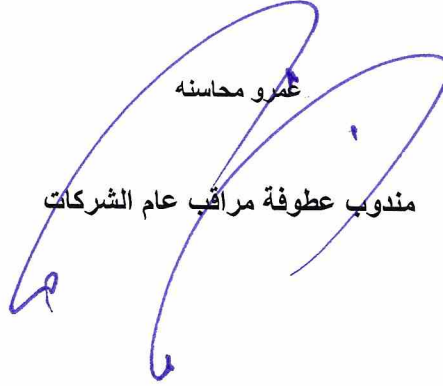 عمرو محاسنه
مندوب عطوفة مراقب عام الشركات